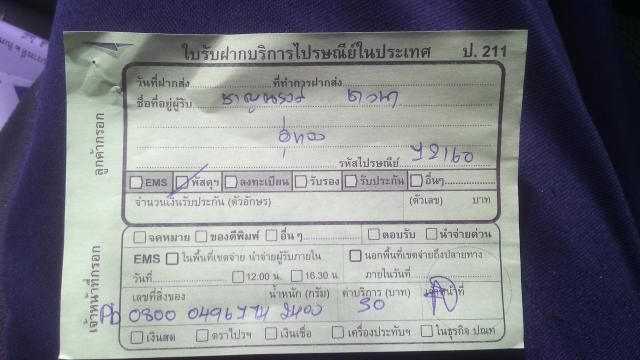 ใบรับฝากบริการไปรษณีย์ในประเทศ ป. 211
ลูกค้ากรอก
วันที่ฝากส่ง ที่ทำการฝากส่ง
ชื่อที่อยู่ผู้รับ
อู่ทอง
รหัสไปรษณีย์ 72160
EMS พัสดุฯ ลงทะเบียน รับรอง รับประกัน อื่นๆ
จำนวนเงินรับประกัน (ตัวอักษร) (ตัวเลข) บาท
เจ้าหน้าที่กรอก
จดหมาย ของตีพิมพ์ อื่น ๆ ตอบรับ นำจ่ายด่วน
EMS ในพื้นที่เขตจ่าย นำจ่ายผู้รับภายใน นอกพื้นที่เขตจ่ายถึงปลายทาง
วันที่ 12.00 น. 16.30 น. ภายในวันที่
เลขที่สิ่งของ น้ำหนัก (กรัม) ค่าบริการ (บาท) เจ้าหน้าที่
0800 0496774 30
เงินสด ตราไปรฯ เงินเชื่อ เครื่องประทับฯ ในธุรกิจ ปณท